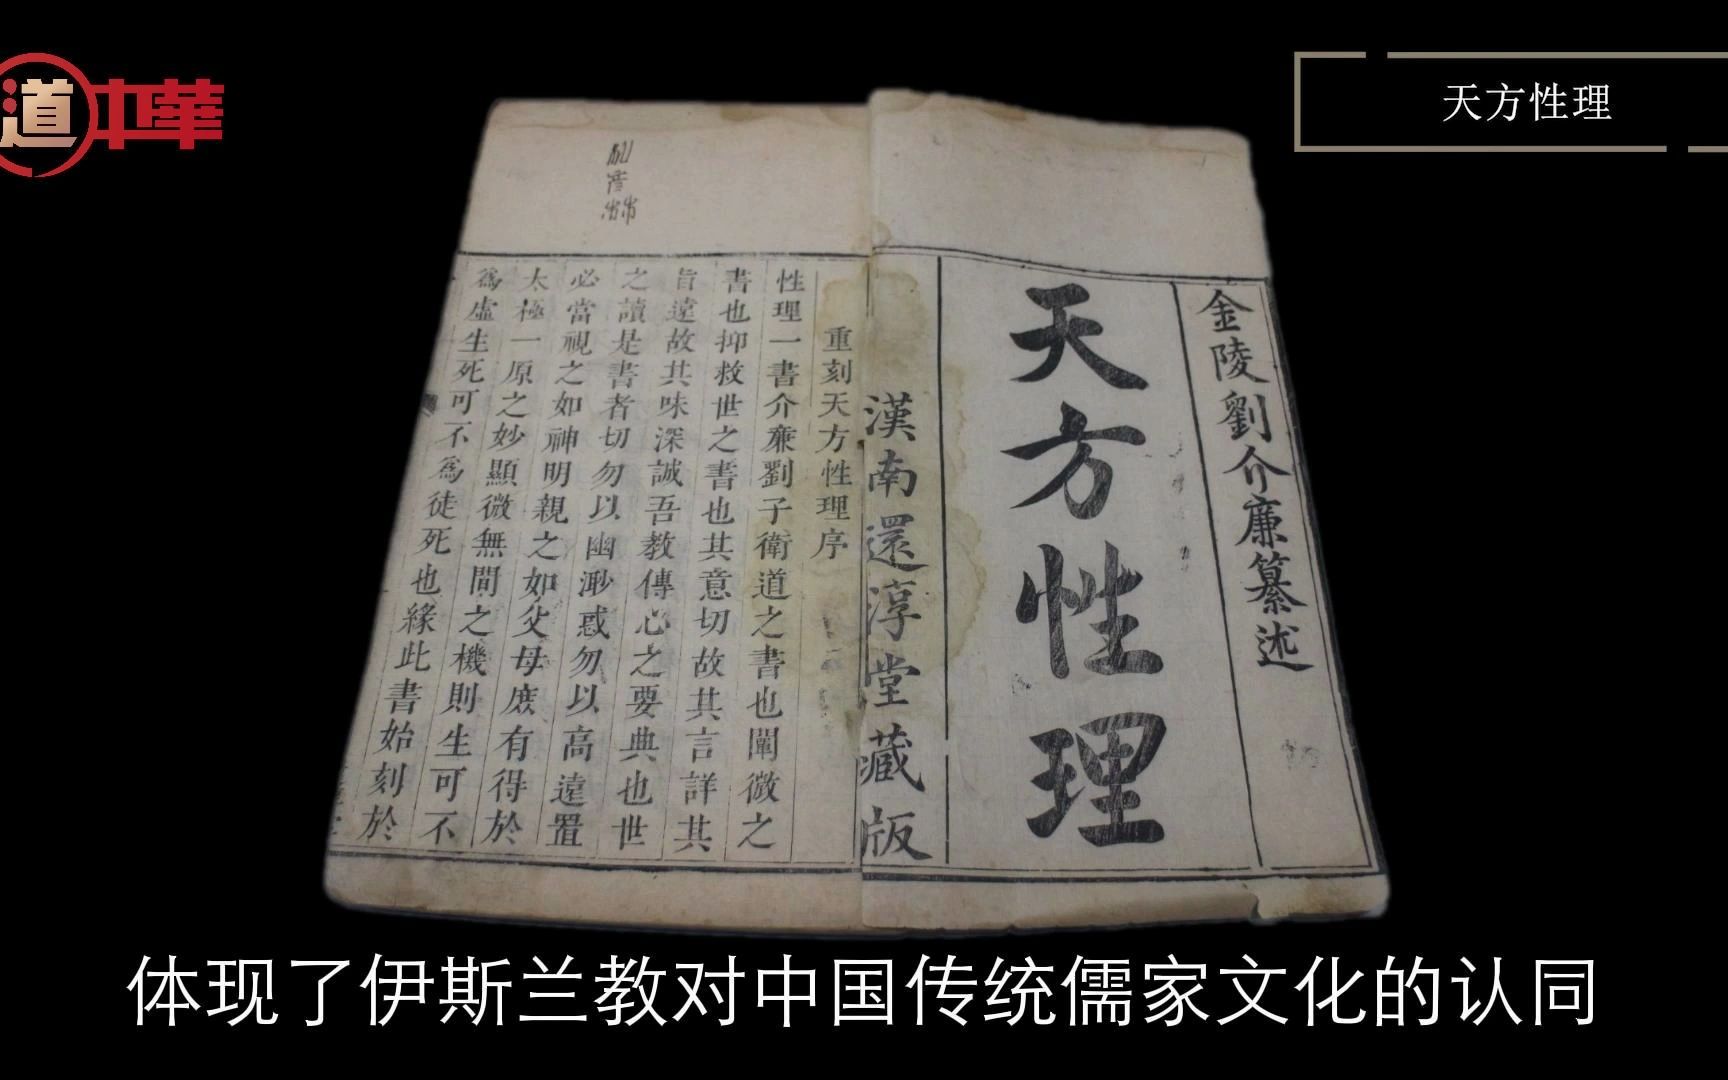 道中華
天方性理
金陵劉介廉纂述
天方性理
漢南還淳堂藏版
重刻天方性理序
性理一書介廉劉子衛道之書也闡微之
書也抑救世之書也其意切故其言詳其
旨遠故其味深誠吾教傳心之要典也世
之讀是書者切勿以幽渺惑勿以高遠置
必當視之如神明親之如父母庶有得於
太極一原之妙顯微無間之機則生可不
為虛生死可不為徒死也緣此書始刻於
体现了伊斯兰教对中国传统儒家文化的认同